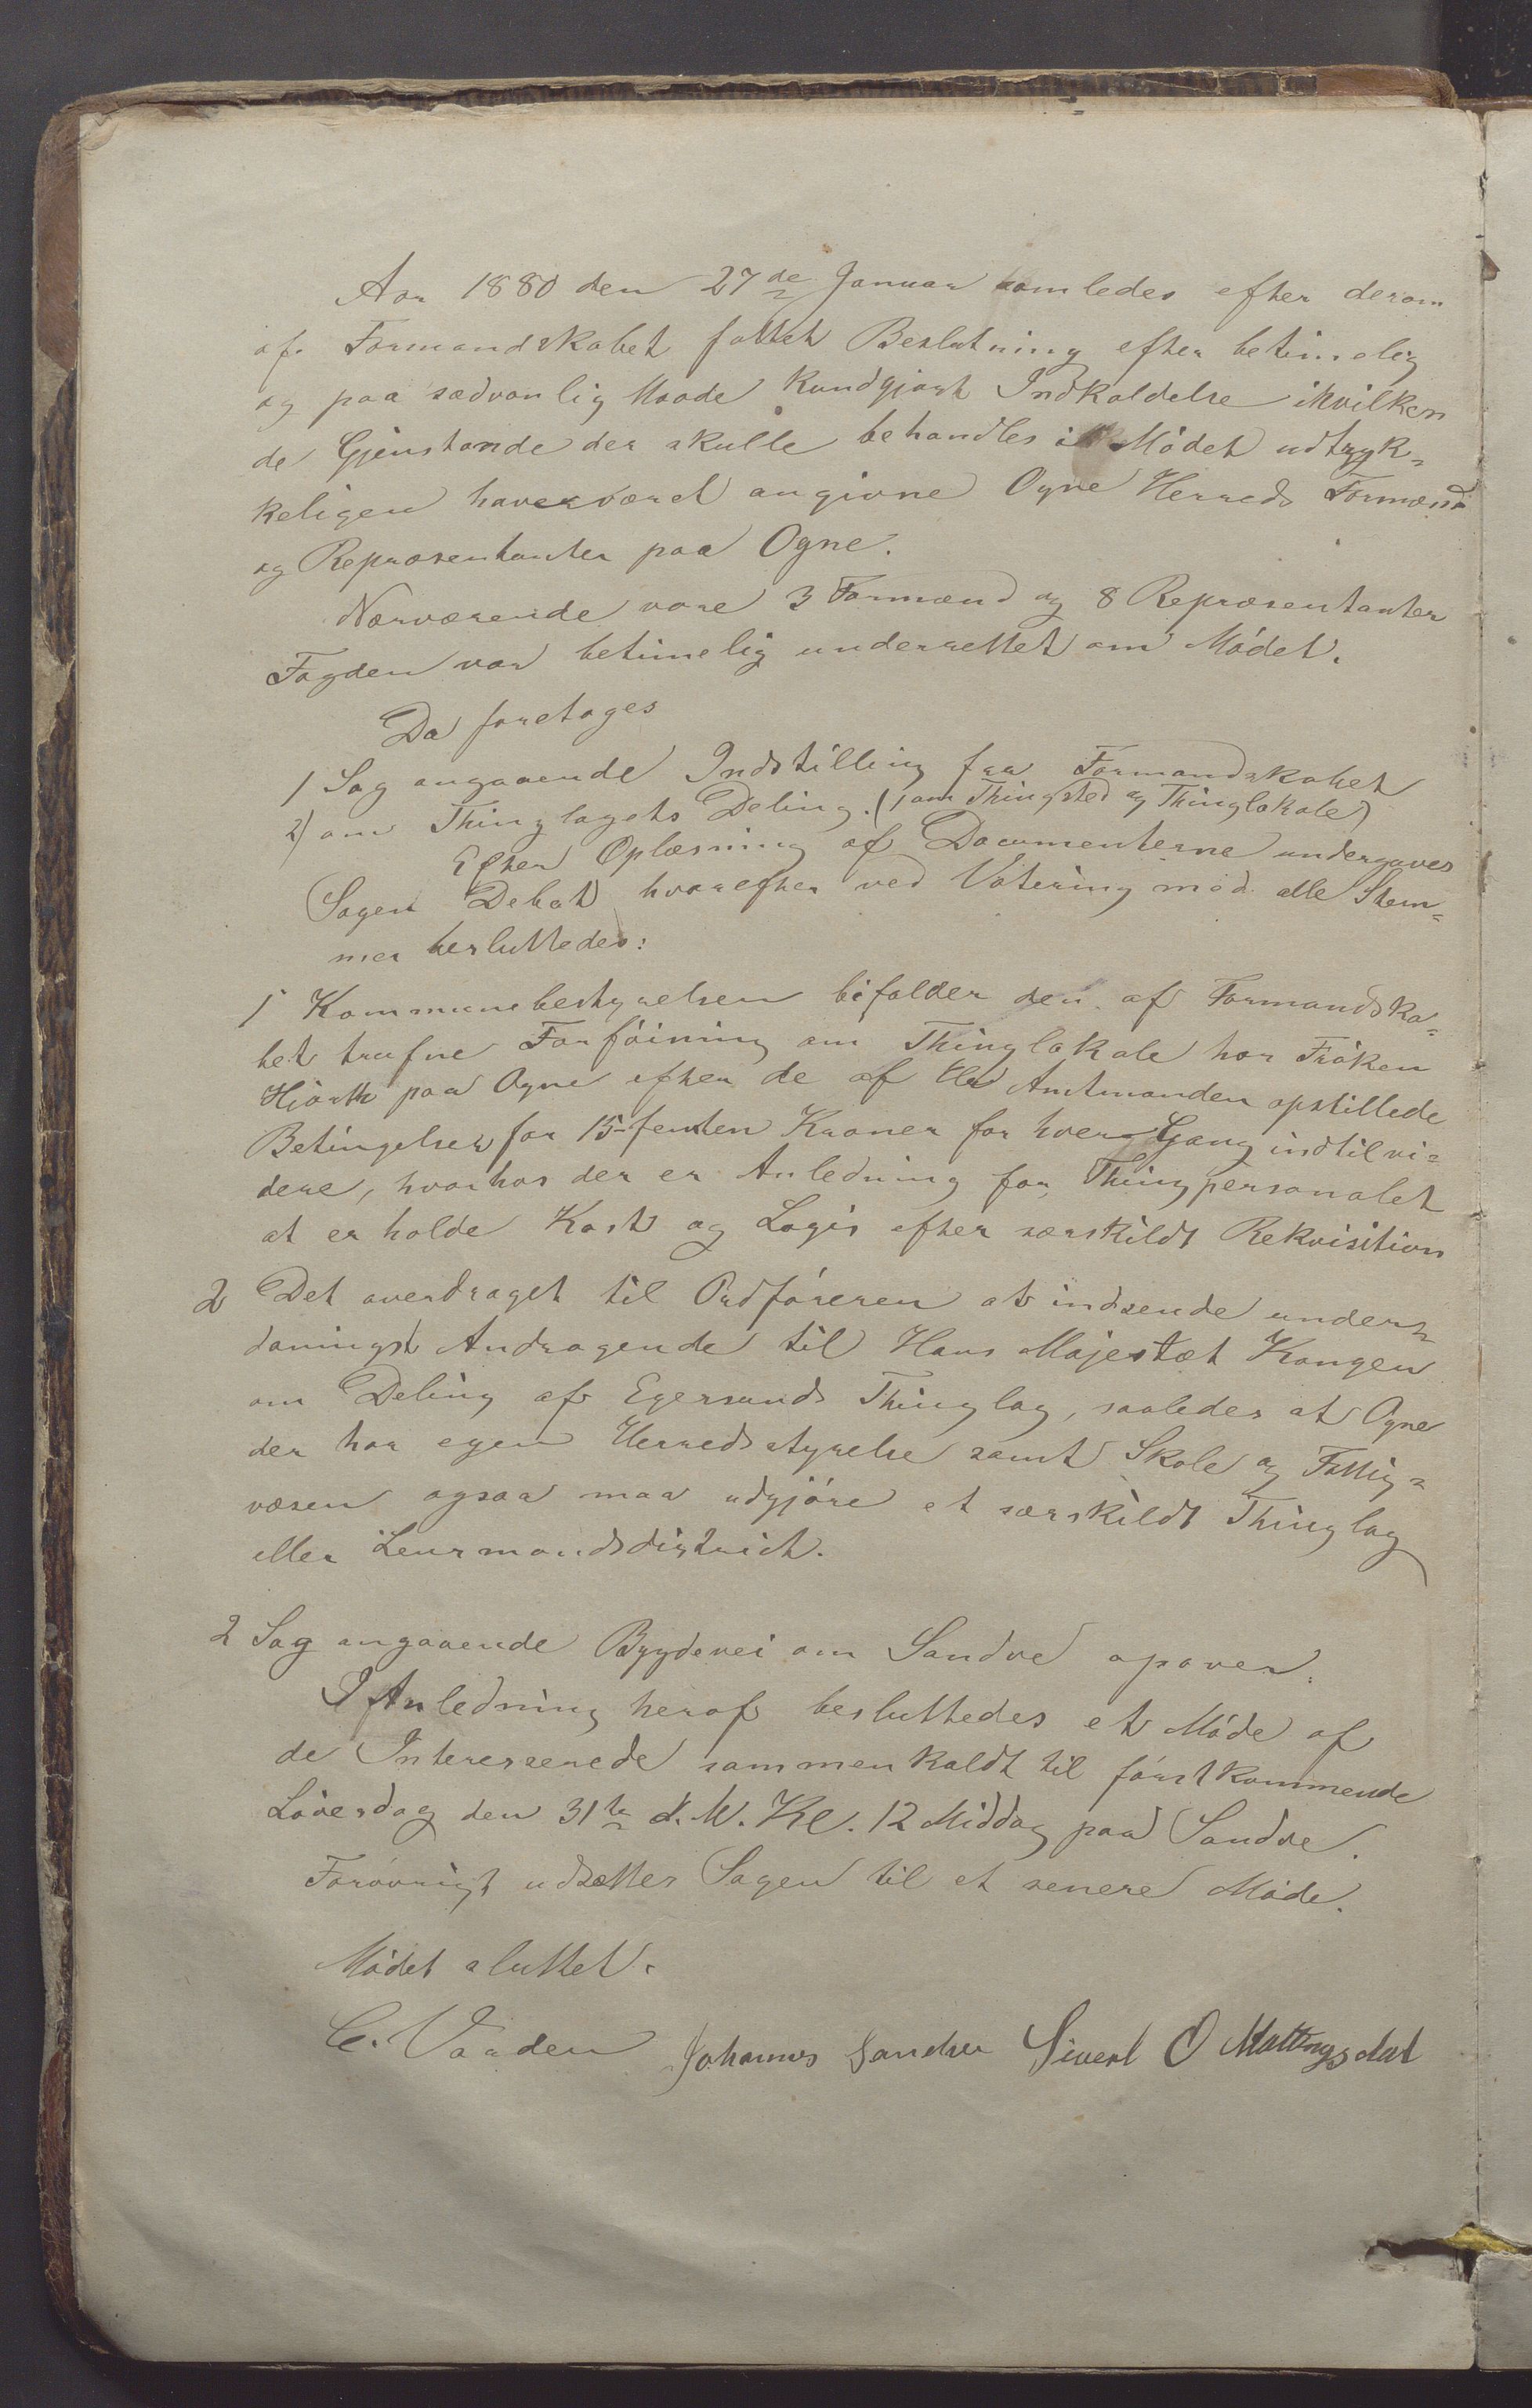 Aar 1880 den 27de Januar samledes efter derom
af Formandskabet fattet Beslutning efter betimelig
og paa sædvanlig Maade kundgjort Indkaldelse ihvilken
de Gjenstande der skulle behandles i Mødet udtryk=
keligen have været angivne Ogne Herreds Formænd
og Repræsentanter paa Ogne.
Nærværende vare 3 Formænd og 8 Repræsentanter
Fogden var betimelig underrettet om Mødet.
Da foretages
1 Sag angaaende Indstilling fra Formandskabet
2) om Thinglagets Deling. (1 om Thingsted og Thinglokale)
Efter Oplæsning af Documenterne undergaves
Sagen Debat hvorefter ved Votering mod alle Stem=
mer besluttedes:
1 Kommunebestyrelsen bifalder den af Formandska=
bet trufne Forføining om Thinglokale hos Frøken
Hjorth paa Ogne efter de af Hr Amtmanden opstillede
Betingelser for 15 femten Kroner for hver Gang indtilvi=
dere, hvorhos der er Anledning for Thingpersonalet
at erholde Kost og Logis efter særskildt Rekvisition
2 Det overdraget til Ordføreren at indsende under=
daningst Andragende til Hans Majestæt Kongen
om Deling af Egersunds Thinglag, saaledes at Ogne
der har egen Herredsstyrelse samt Skole og Fattig=
væsen ogsaa maa udgjøre et særskildt Thinglag
eller Lensmandsdistrict.
2 Sag angaaende Bygdevei om Sandve opover.
I Anledning heraf besluttedes et Møde af
de Interesserede sammenkaldt til førstkommende
Løverdag den 31te d. M. Kl. 12 Middag paa Sandve.
Forøvrigt udsættes Sagen til et senere Møde.
Mødet sluttet.
C. Vaaden Johannes Sandve Sivert O Mattingsdal